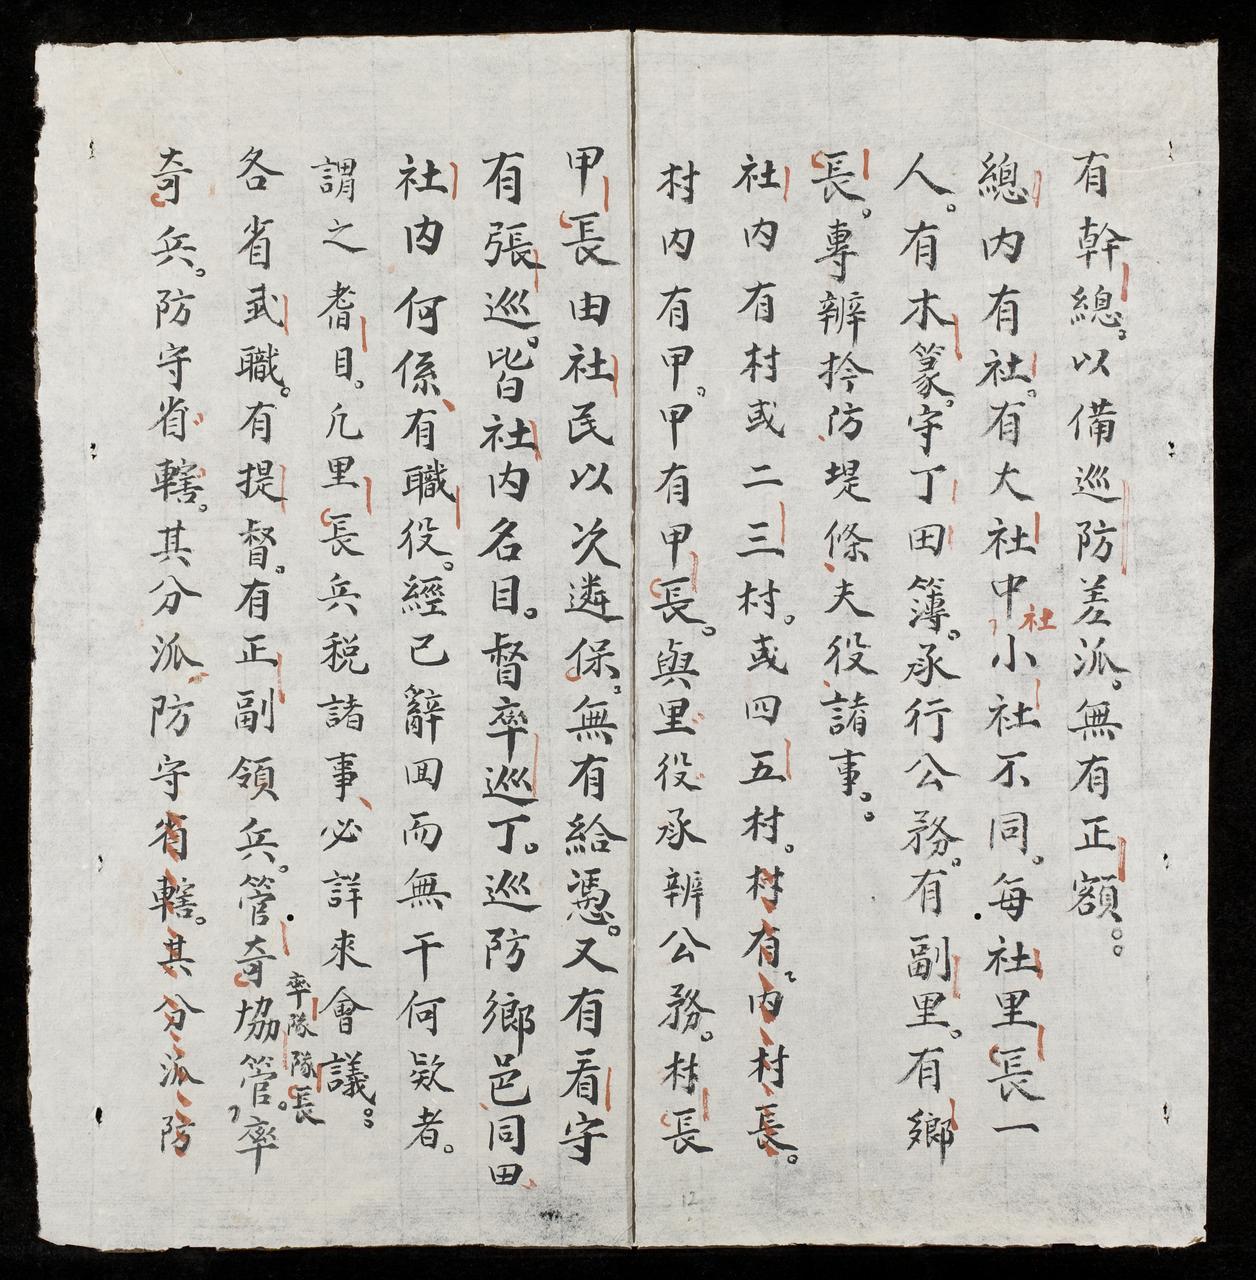 有幹總。以備巡防差派。無有正額。。
總内有社。有大社中小社不同。每社里長一
社
人。有木篆。守丁田簿。承行公務。有副里。有鄉
長。專辨捦防堤條夫役諸事。。
社内有村或二三村。或四五村。村有内村長。
村内有甲。甲有甲長。與里役承辨公務。村長
甲長由社民以次遴保。無有給憑。又有看守
有張巡。皆社内名目。督率巡丁。巡防鄉邑同田
社内何係有職役。經已辭回而無干何欵者。
謂之耆目。凢里長兵税諸事必詳來會議。。
各省武職。有提督。有正副領兵。管奇協管。率
率隊隊長
奇兵。防守省轄。其分派防守省轄。其分派防
12